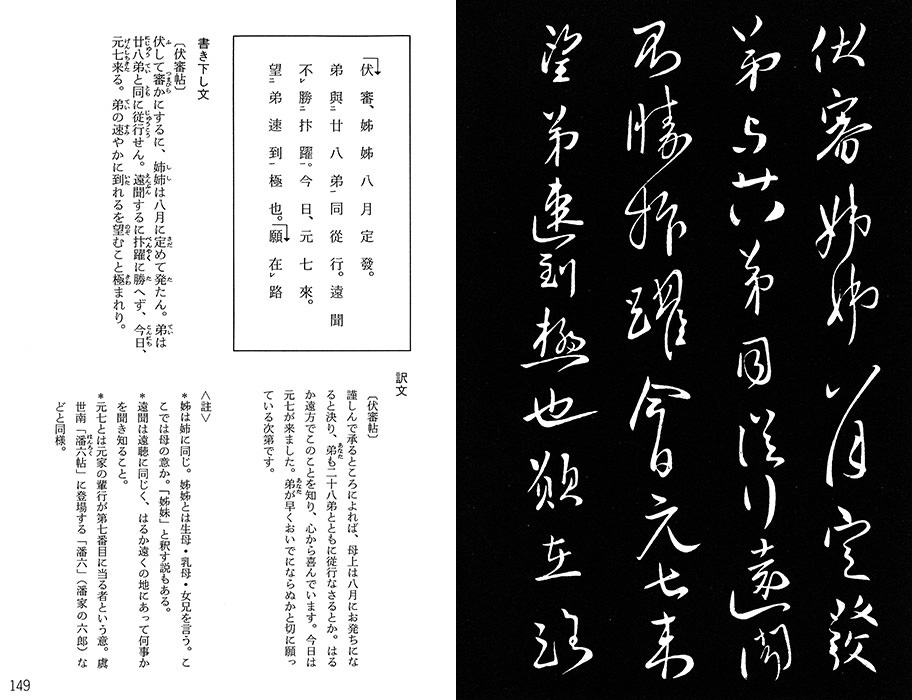 伏審姊姊八月定發
弟与廿八弟同從行遠聞
不勝抃躍今日元七来
望弟速到極也願在路
伏審、姊姊八月定發。
弟與二廿八弟一同從行。遠聞
不レ勝二抃躍一。今日、元七來。
望二弟速到一極也。願在レ路
書き下し文
〔伏審帖〕
伏して審かにするに、姉姉は八月に定めて発たん。弟は
廿八弟と同に従行せん。遠聞するに抃躍に勝へず、今日、
元七来る。弟の速やかに到れるを望むこと極まれり。
訳文
〔伏審帖〕
謹しんで承るところによれば、母上は八月にお発ちにな
ると決り、弟も二十八弟とともに従行なさるとか。はる
か遠方でこのことを知り、心から喜んでいます。今日は
元七が来ました。弟が早くおいでにならぬかと切に願っ
ている次第です。
〈註〉
*姊は姉に同じ。姊姊とは生母・乳母・女兄を言う。こ
こでは母の意か。「姊妹」と釈す説もある。
*遠聞は遠聴に同じく、はるか遠くの地にあって何事か
を聞き知ること。
*元七とは元家の輩行が第七番目に当る者という意。虞
世南「潘六帖」に登場する「潘六」（潘家の六郎）な
どと同様。
149